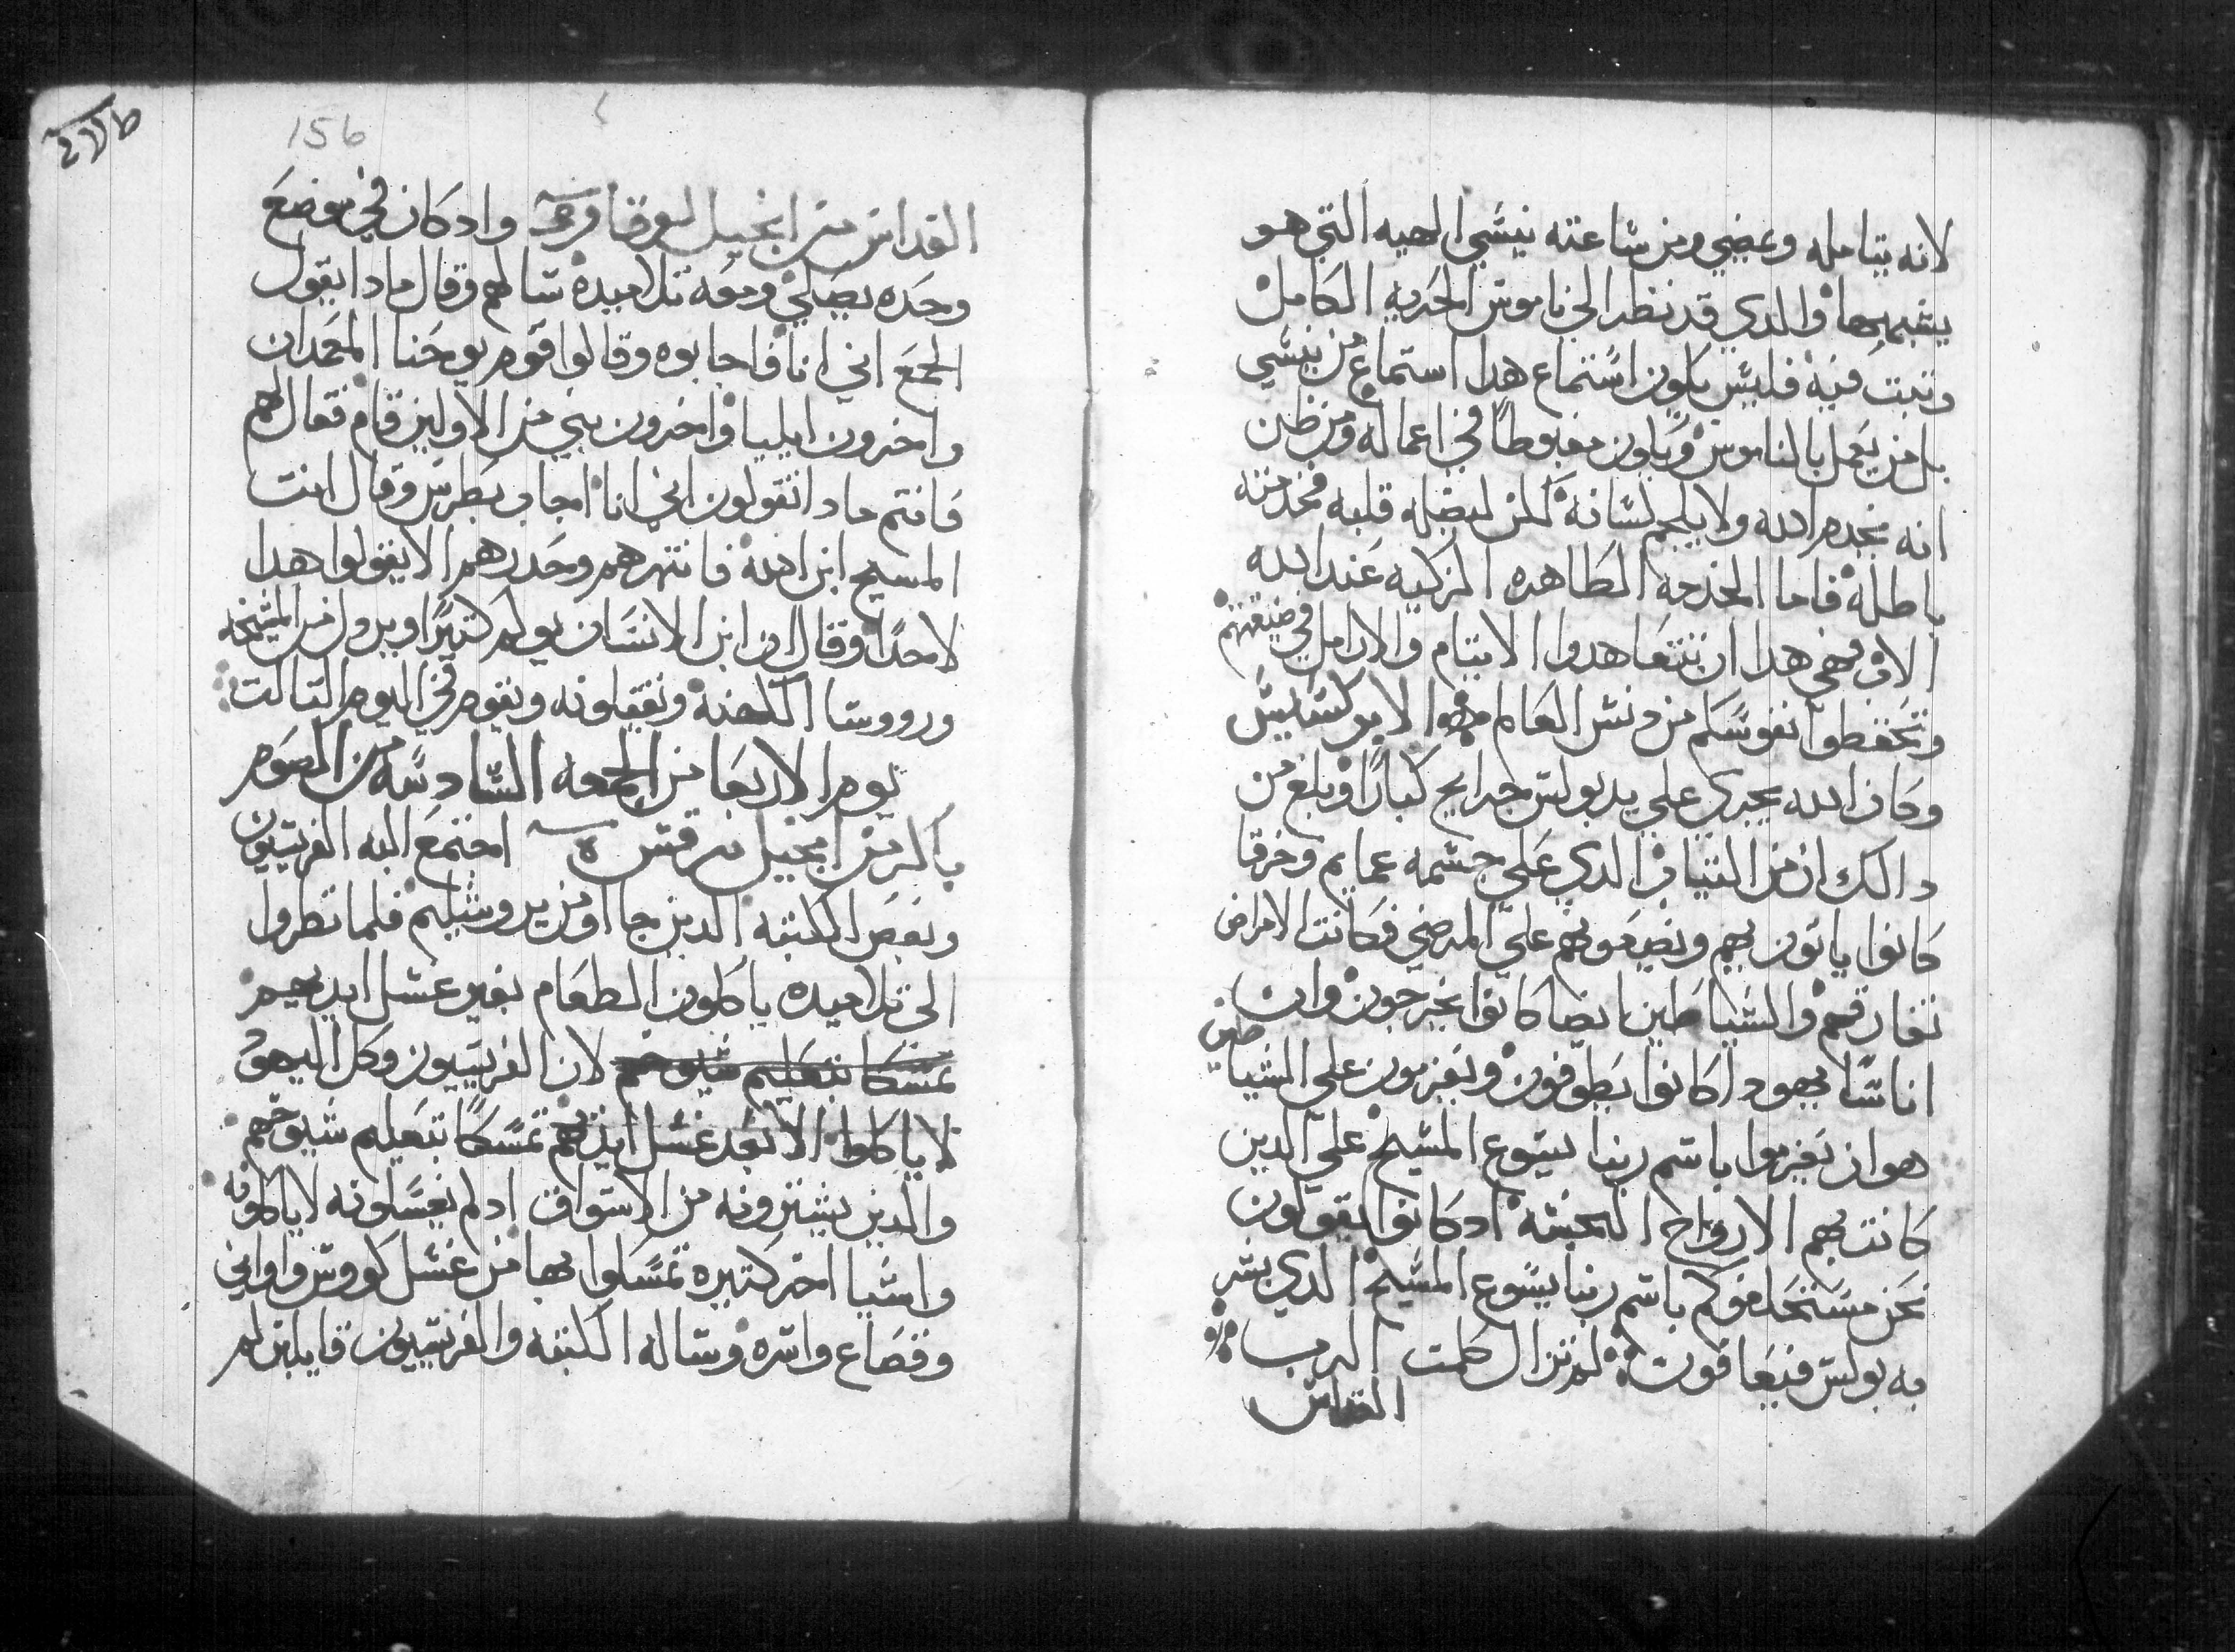 لانه يتامله ويمضي ومن ساعته ينسي الهيه التي هو
يشبهها والدي قد نظر الي ناموس الحريه الكامل
وتبت فيه فليس يكون استماع هدا استماع من ينسي
بل من يعمل بالناموس ويكون مغبوطا في اعماله ومن ظن
انه يخدم الله ولا يلجم لسانه لكن ليضله قلبه فخدمته
باطله فاما الخدمه الطاهره الزكيه عند الله
الاب فهي هدا ان تتعاهدوا الايتام والارامل في ضيقتهم
وتحفظوا نفوسكم من دنس العالم الابركسيس
وكان الله يجري علي يد بولس جرايح كبارا وبلغ من
دالك ان من التياب الدي علي جسمه عمايم وخرقا
كانوا ياتون بهم ويضعونهم علي المرضي فكانت الامراض
تفارقهم والشياطين ايضا كانوا يخرجون وان
اناسا يهودا كانوا يطوفون ويعزمون علي الشياطين
هوان يعزموا باسم ربنا يسوع المسيح علي الدين
كانت بهم الارواح النجسه ادكانوا يقولون
نحن نستحلفوكم باسم ربنا يسوع المسيح الدي بشر
به بولس فيعافون لم تزال كلمت الرب
القداس
156
القداس من انجيل لوقا وادكان في موضع
وحده يصلي ومعه تلاميده سالهم وقال مادا يقول
الجمع اني انا فاجابوه وقالوا قوم يوحنا المعمدان
واخرون ايليا واخرون نبي من الاولين قام فقال لهم
فانتم مادا تقولون اني انا اجاب بطرس وقال انت
المسيح ابن الله فانتهرهم وحدرهم الا يقولوا هدا
لاحدا وقال ان ابن الانسان يولم كتيرا ويردل من المشيخه
ورووسا الكهنه ويقتلونه ويقوم في اليوم التالت
يوم الاربعا من الجمعه السادسه من الصوم
باكر من انجيل مرقس اجتمع اليه الفريسيون
وبعض الكتبه الدين جا اومن يروشليم فلما نظروا
الي تلاميده ياكلون الطعام بغير غسل ايديهم
تمسكا بتعليم شيوخهم لان الفريسيون وكل اليهود
لا ياكلوا الا بعد غسل ايديهم تمسكا بتعليم شيوخهم
والدين يشترونه من الاسواق ادلم يغسلونه لا ياكلونه
واشيا اخر كتيره تمسكوا بها من غسل كووس واواني
وقصاع واسره وساله الكتبه والفريسيون قايلين لم